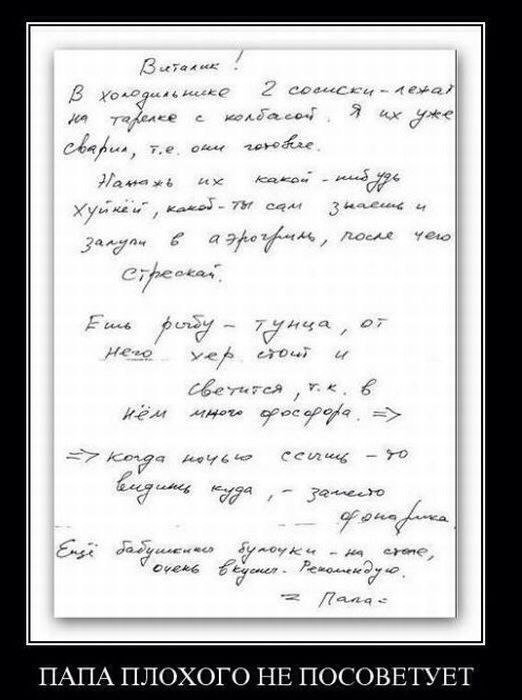 Виталик!
В холодильнике 2 сосиски - лежат
на тарелке с колбасой. Я их уже
сварил, т.е. они готовые.
Намажь их какой-нибудь
хуйнёй, какой-ты сам знаешь и
залупи в аэрогриль, после чего
стрескай.
Ешь рыбу - тунца, от
него хер стоит и
светится, т.к. в
нём много фосфора. =>
=> когда ночью ссышь - то
видишь куда, - заместо
фонарика.
Ещё бабушкины булочки - на столе,
очень вкусные. Рекомендую.
= Папа =
ПАПА ПЛОХОГО НЕ ПОСОВЕТУЕТ